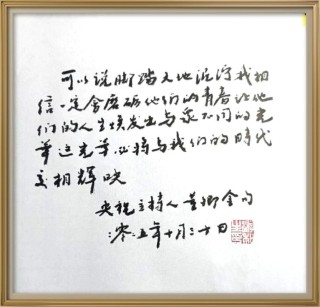 可以说脚踏大地泥泞我相
信一定会磨砺他们的青春让他
们的人生焕发出与众不同的光
华这光华必将与我们的时代
交相辉映
央视主持人董卿金句
二零二五年十月二十日